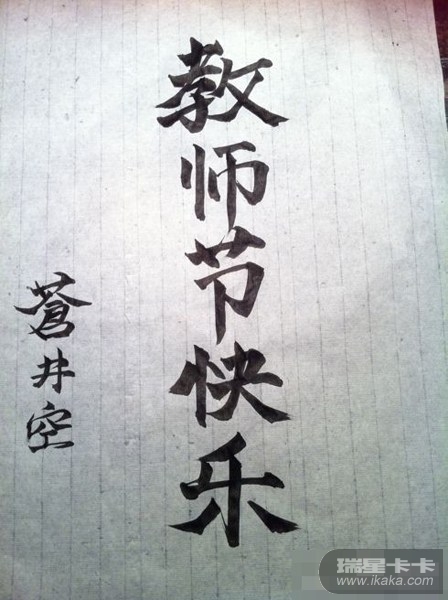 教师节快乐
蒼井空
瑞星卡卡
www.ikaka.com